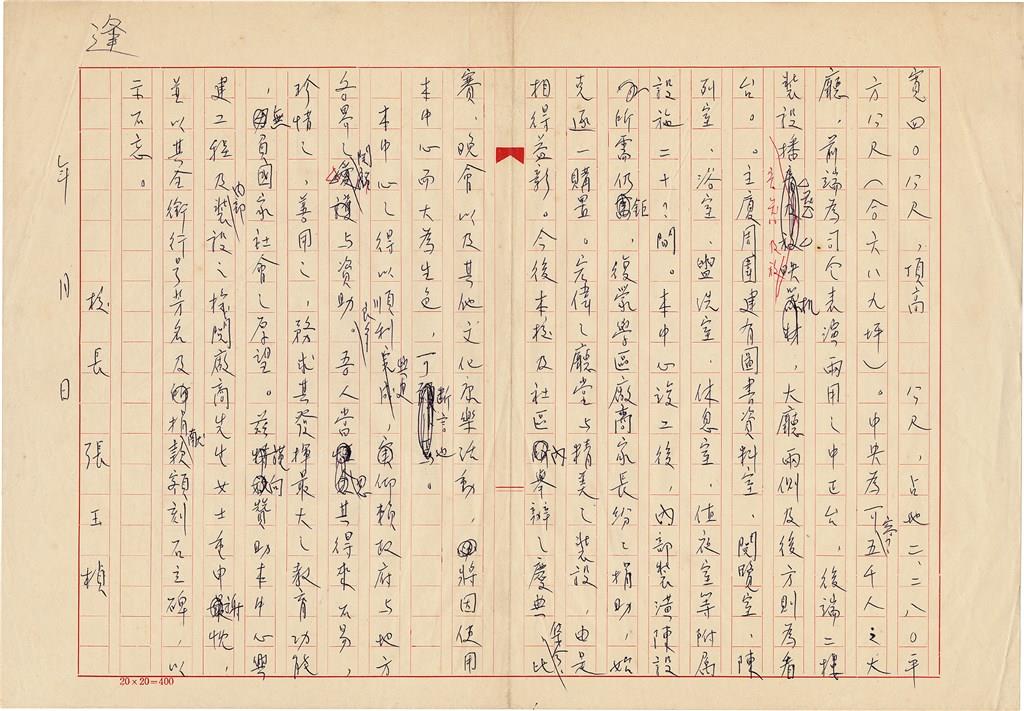 寬四〇公尺，頂高　公尺，占地二、二八〇平
方公尺（合六八九坪）。中央為可容五千人之大
廳，前端為司令表演兩用之中正台，後端二樓
裝設播音及放映机，大廳兩側及後方則為看
台。主廈周圍建有圖書資料室、閱覽室、陳
列室、浴室、盥洗室、休息室、值夜室等附屬
設施二十？間。本中心竣工後，內部裝潢陳設
所需仍鉅，復蒙學區廠商家長紛紛捐助，始
克逐一購置。宏偉之廳堂与精美之裝設，由是
相得益彰。今後本校及社區內舉辦之慶典集會、比
賽、晚會以及其他文化康樂活動，將因使用
本中心而大為生色，可斷言也。
本中心之得以順利完成與，仰賴政府与地方
各界之関顧与資助。吾人當思其得來不易，
珍惜之、善用之，務求其發揮最大之教育功能
，無負國家社會之厚望。茲謹向贊助本中心興
建工程及內部裝設之機関廠商先生女士重申謝忱，
並以其全銜行號芳名及捐獻款額刻石立碑，以
示不忘。
校長　張玉楨
年　月　日
逢
20×20=400